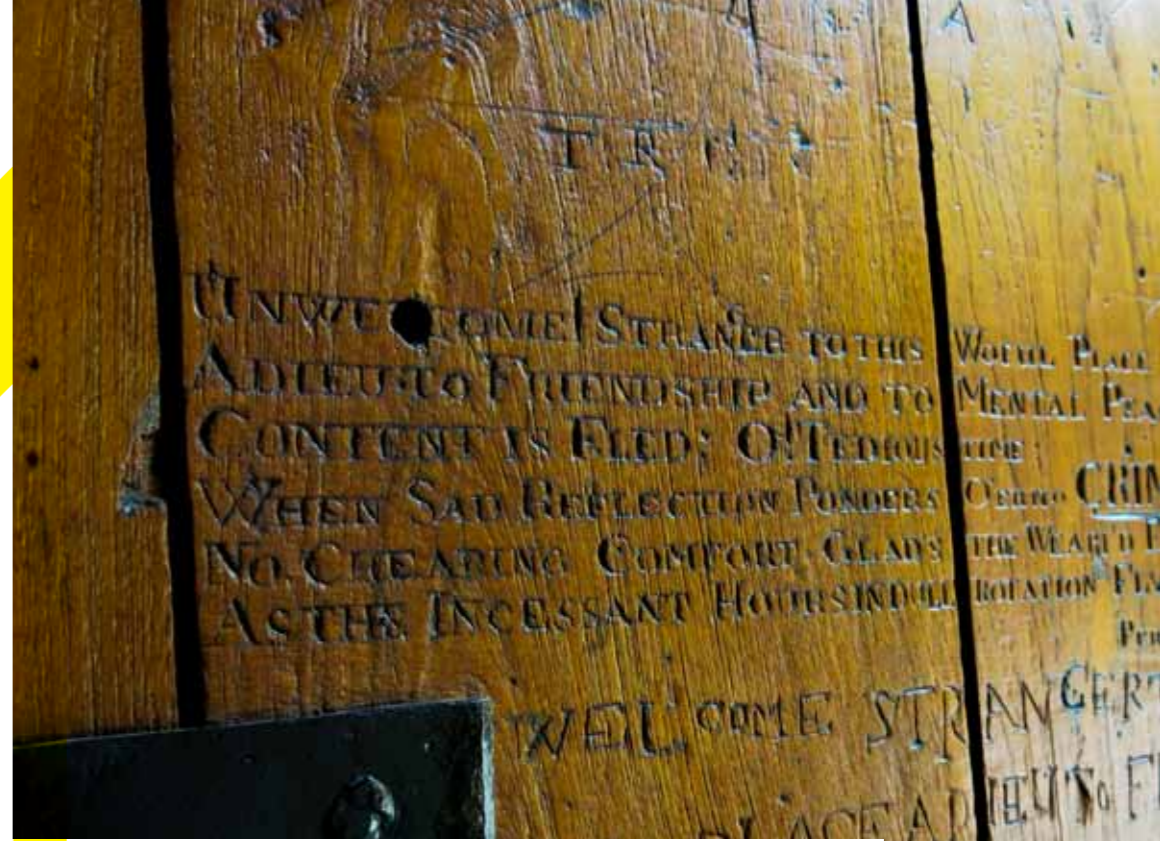 UNWELCOME! STRANGER TO THIS WOEFUL PLACE
ADIEU TO FRIENDSHIP AND TO MENTAL PEA
CONTENT IS FLED; O! TEDIOUS TIME;
WHEN SAD REFLECTION PONDERS O'ER CRIM
NO CHEARING COMFORT GLADS THE WEARI'D
AS THE INCESSANT HOURS IN DULL ROTATION
WELCOME STRANGER T
PLACE ADIEU TO F